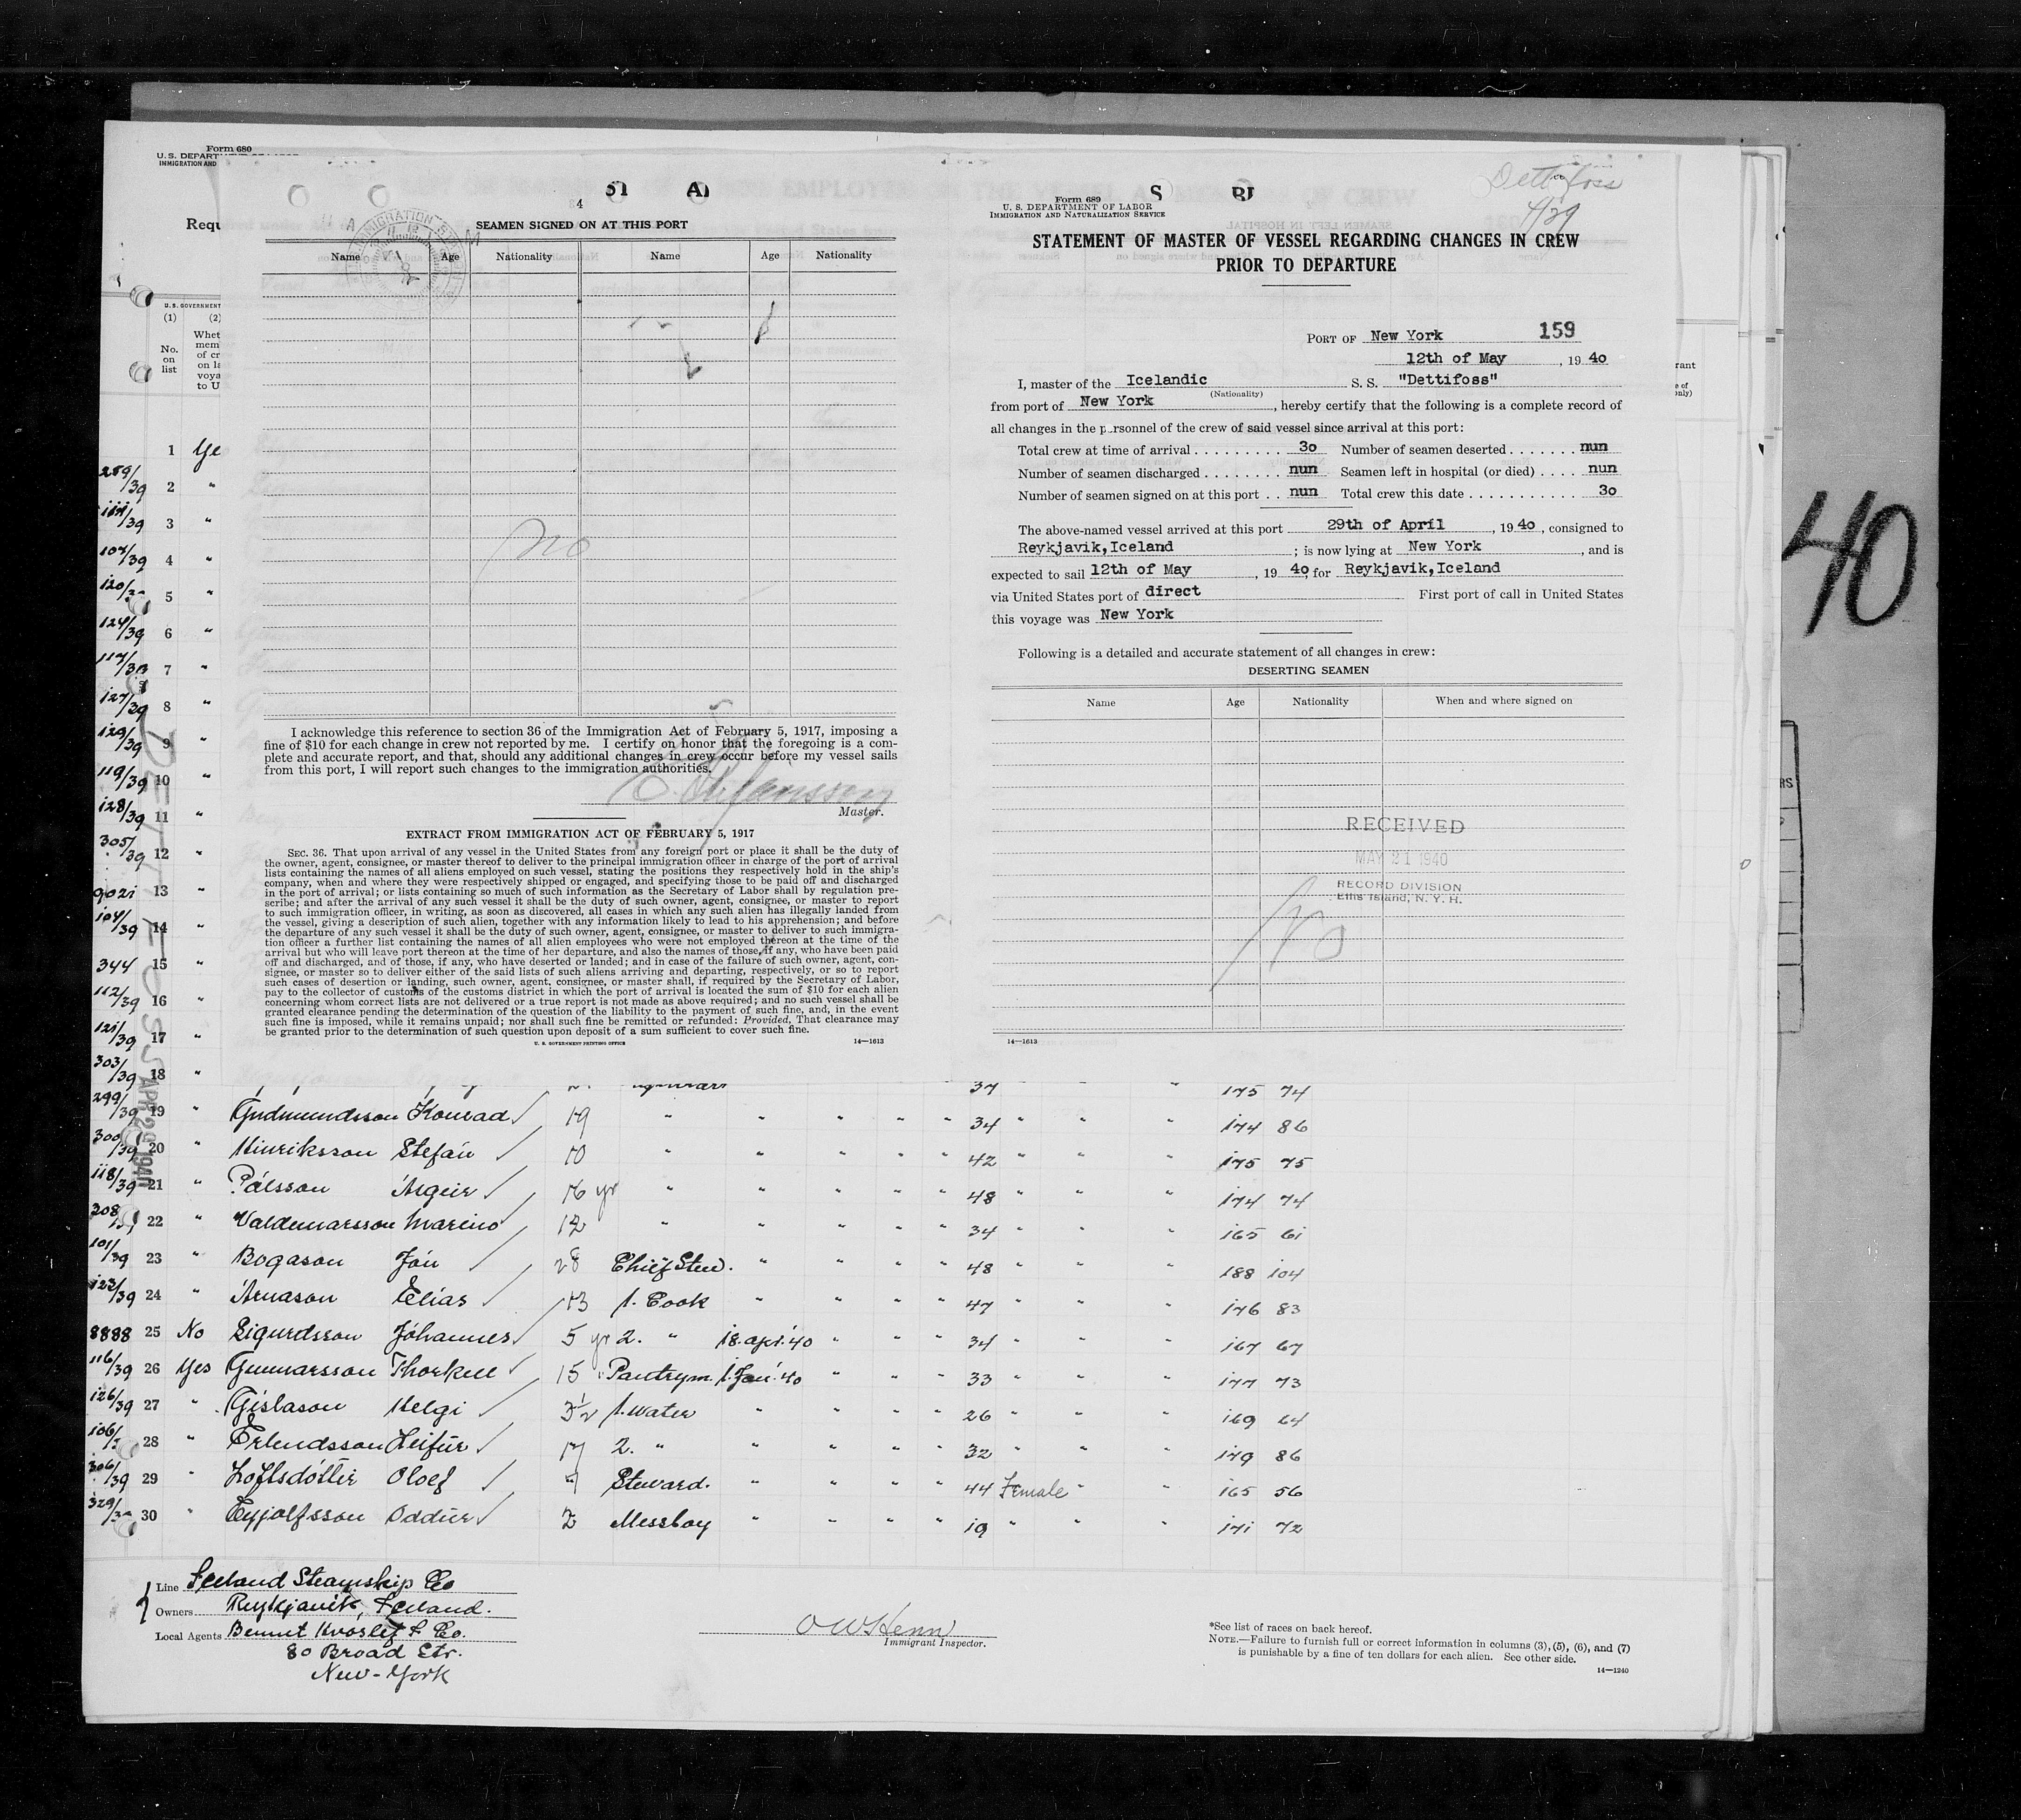 Form 680
U. S. DEPART
IMMIGRATION AND
Requ
U. S. GOVERNMENT
(1) (2)
No. on list
Whet
mem
of cr
on la
voya
to U
51 A)
4
SEAMEN SIGNED ON AT THIS PORT
Name Age Nationality Name Age Nationality
No
I acknowledge this reference to section 36 of the Immigration Act of February 5, 1917, imposing a
fine of $10 for each change in crew not reported by me. I certify on honor that the foregoing is a com-
plete and accurate report, and that, should any additional changes in crew occur before my vessel sails
from this port, I will report such changes to the immigration authorities.
Master.
EXTRACT FROM IMMIGRATION ACT OF FEBRUARY 5, 1917
SEC. 36. That upon arrival of any vessel in the United States from any foreign port or place it shall be the duty of
the owner, agent, consignee, or master thereof to deliver to the principal immigration officer in charge of the port of arrival
lists containing the names of all aliens employed on such vessel, stating the positions they respectively hold in the ship's
company, when and where they were respectively shipped or engaged, and specifying those to be paid off and discharged
in the port of arrival; or lists containing so much of such information as the Secretary of Labor shall by regulation pre-
scribe; and after the arrival of any such vessel it shall be the duty of such owner, agent, consignee, or master to report
to such immigration officer, in writing, as soon as discovered, all cases in which any such alien has illegally landed from
the vessel, giving a description of such alien, together with any information likely to lead to his apprehension; and before
the departure of any such vessel it shall be the duty of such owner, agent, consignee, or master to deliver to such immigra-
tion officer a further list containing the names of all alien employees who were not employed thereon at the time of the
arrival but who will leave port thereon at the time of her departure, and also the names of those, if any, who have been paid
off and discharged, and of those, if any, who have deserted or landed; and in case of the failure of such owner, agent, con-
signee, or master so to deliver either of the said lists of such aliens arriving and departing, respectively, or so to report
such cases of desertion or landing, such owner, agent, consignee, or master shall, if required by the Secretary of Labor,
pay to the collector of customs of the customs district in which the port of arrival is located the sum of $10 for each alien
concerning whom correct lists are not delivered or a true report is not made as above required; and no such vessel shall be
granted clearance pending the determination of the question of the liability to the payment of such fine, and, in the event
such fine is imposed, while it remains unpaid; nor shall such fine be remitted or refunded: Provided, That clearance may
be granted prior to the determination of such question upon deposit of a sum sufficient to cover such fine.
U. S. GOVERNMENT PRINTING OFFICE 14—1613
Dettifoss
4/29
Form 689
U. S. DEPARTMENT OF LABOR
IMMIGRATION AND NATURALIZATION SERVICE
STATEMENT OF MASTER OF VESSEL REGARDING CHANGES IN CREW
PRIOR TO DEPARTURE
PORT OF New York 159
12th of May , 19 40
I, master of the Icelandic S. S. "Dettifoss"
(Nationality)
from port of New York , hereby certify that the following is a complete record of
all changes in the personnel of the crew of said vessel since arrival at this port:
Total crew at time of arrival 3o Number of seamen deserted nun
Number of seamen discharged nun Seamen left in hospital (or died) nun
Number of seamen signed on at this port nun Total crew this date 3o
The above-named vessel arrived at this port 29th of April , 19 4o , consigned to
Reykjavik,Iceland ; is now lying at New York , and is
expected to sail 12th of May , 19 4o, for Reykjavik,Iceland
via United States port of direct First port of call in United States
this voyage was New York
Following is a detailed and accurate statement of all changes in crew:
DESERTING SEAMEN
Name Age Nationality When and where signed on
RECEIVED
MAY 21 1940
RECORD DIVISION
Ellis Island, N. Y. H.
No
14—1613
40
1 Ye
2 "
3 "
4 "
5 "
6 "
7 "
8 "
9 "
10 "
11 "
12 "
13 "
14 "
15 "
16 "
17 "
18 "
DETTIFOSS APR 29 1940
37 " " 175 74
299/39 19 " Gudmundsson Konrad 19 " " " " " 34 " " " 174 86
300/39 20 " Hinriksson Stefán 10 " " " " " 42 " " " 175 75
118/39 21 " Pálsson Ásgeir 16 yr " " " " " 48 " " " 174 74
22 " Valdemarsson Marino 12 " " " " " 34 " " " 165 61
101/39 23 " Bogason Jón 28 Chief Stew. " " " " 48 " " " 188 104
123/39 24 " Árnason Elías 13 1. Cook " " " " 47 " " " 176 83
8888 25 No Sigurdsson Jóhannes 5 yr 2. " 18. apr. '40 " " " 34 " " " 167 67
116/39 26 Yes Gunnarsson Thorkell 15 " Pantrym 1. Jan '40 " " " 33 " " " 177 73
126/39 27 " Gislason Helgi 3½ 1. water " " " " 26 " " " 169 64
28 " Erlendsson Heifur 17 2. " " " " " 32 " " " 179 86
306/39 29 " Loftsdóttir Oloef 7 Steward. " " " " 44 Female " " 165 56
30 " Eyjolfsson Oddur 2 Messboy " " " " 19 " " " 171 72
Line Iceland Steamship Co
Owners Reykjavik, Iceland.
Local Agents Bennet Hvoslef & Co.
80 Broad Str.
New-York
O W Henn
Immigrant Inspector.
*See list of races on back hereof.
NOTE.—Failure to furnish full or correct information in columns (3), (5), (6), and (7)
is punishable by a fine of ten dollars for each alien. See other side.
14—1240